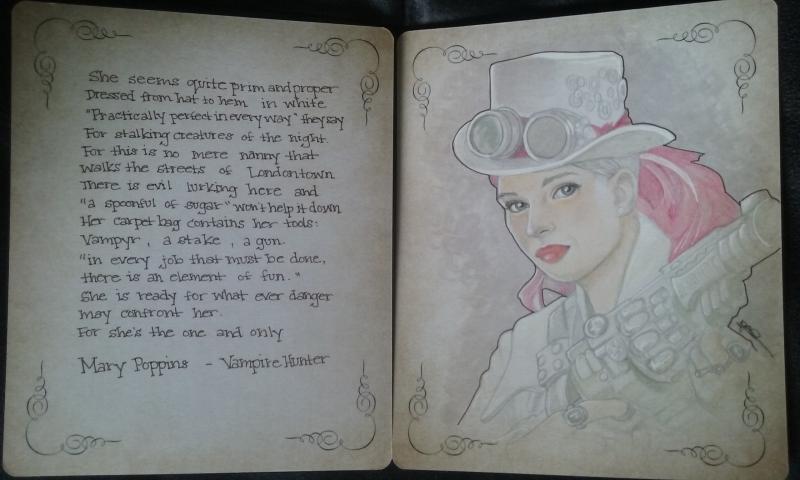 She seems quite prim and proper
Dressed from hat to hem in white
"Practically perfect in every way" they say
For stalking creatures of the night.
For this is no mere nanny that
walks the streets of Londontown
There is evil lurking here and
"a spoonful of sugar" won't help it down
Her carpet bag contains her tools:
Vampyr, a stake, a gun.
"in every job that must be done,
there is an element of fun."
She is ready for what ever danger
may confront her.
For she's the one and only
Mary Poppins - Vampire Hunter